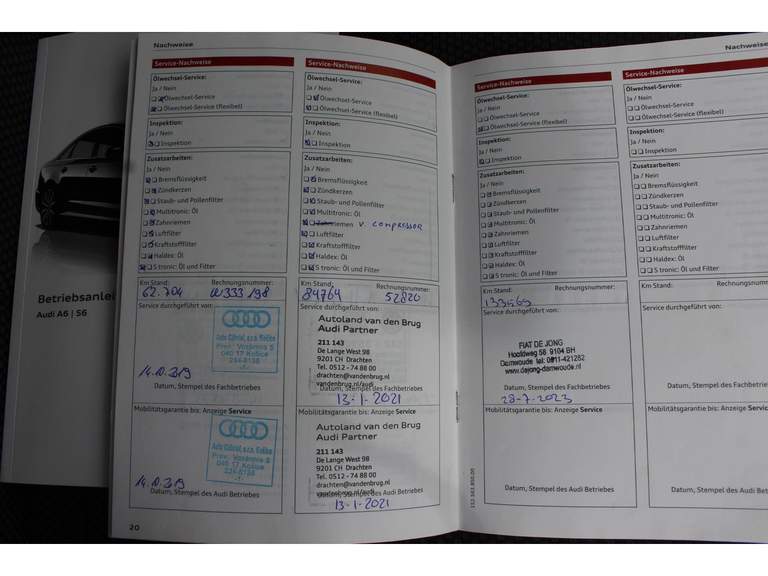 Betriebsanlei
Audi A6 | S6
Nachweise
Service-Nachweise
Ölwechsel-Service:
Ja / Nein
Ölwechsel-Service
Ölwechsel-Service (flexibel)
Inspektion:
Ja / Nein
Inspektion
Zusatzarbeiten:
Ja / Nein
Bremsflüssigkeit
Zündkerzen
Staub- und Pollenfilter
Multitronic: Öl
Zahnriemen
Luftfilter
Kraftstofffilter
Haldex: Öl
S tronic: Öl und Filter
Km Stand: Rechnungsnummer:
62.704
Service durchgeführt von:
040 17 Košice
Datum, Stempel des Fachbetriebes
Mobilitätsgarantie bis: Anzeige Service
040 17 Košice
Datum, Stempel des Audi Betriebes
20
Service-Nachweise
Ölwechsel-Service:
Ja / Nein
Ölwechsel-Service
Ölwechsel-Service (flexibel)
Inspektion:
Ja / Nein
Inspektion
Zusatzarbeiten:
Ja / Nein
Bremsflüssigkeit
Zündkerzen
Staub- und Pollenfilter
Multitronic: Öl
Zahnriemen v. compressor
Luftfilter
Kraftstofffilter
Haldex: Öl
S tronic: Öl und Filter
Km Stand: Rechnungsnummer:
84764 52820
Service durchgeführt von:
Autoland van den Brug
Audi Partner
211 143
De Lange West 98
9201 CH Drachten
Tel. 0512 - 74 88 00
drachten@vandenbrug.nl
vandenbrug.nl/audi
Datum, Stempel des Fachbetriebes
13-1-2021
Mobilitätsgarantie bis: Anzeige Service
Autoland van den Brug
Audi Partner
211 143
De Lange West 98
9201 CH Drachten
Tel. 0512 - 74 88 00
drachten@vandenbrug.nl
vandenbrug.nl/audi
Datum, Stempel des Audi Betriebes
13-1-2021
Nachweise
Service-Nachweise
Ölwechsel-Service:
Ja / Nein
Ölwechsel-Service
Ölwechsel-Service (flexibel)
Inspektion:
Ja / Nein
Inspektion
Zusatzarbeiten:
Ja / Nein
Bremsflüssigkeit
Zündkerzen
Staub- und Pollenfilter
Multitronic: Öl
Zahnriemen
Luftfilter
Kraftstofffilter
Haldex: Öl
S tronic: Öl und Filter
Km Stand: Rechnungsnummer:
Service durchgeführt von:
FIAT DE JONG
Hoofdweg 58 9104 BH
Damwoude tel: 0511-421282
www.dejong-damwoude.nl
Datum, Stempel des Fachbetriebes
28-7-2023
Mobilitätsgarantie bis: Anzeige Service
Datum, Stempel des Audi Betriebes
Service-Nachweise
Ölwechsel-Service:
Ja / Nein
Ölwechsel-Service
Ölwechsel-Service (flexibel)
Inspektion:
Ja / Nein
Inspektion
Zusatzarbeiten:
Ja / Nein
Bremsflüssigkeit
Zündkerzen
Staub- und Pollenfilter
Multitronic: Öl
Zahnriemen
Luftfilter
Kraftstofffilter
Haldex: Öl
S tronic: Öl und Filter
Km Stand: Rechnungs
Service durchgeführt von:
Datum, Stempel des Fachbetri
Mobilitätsgarantie bis: Anzeige Servi
Datum, Stempel des Audi Be